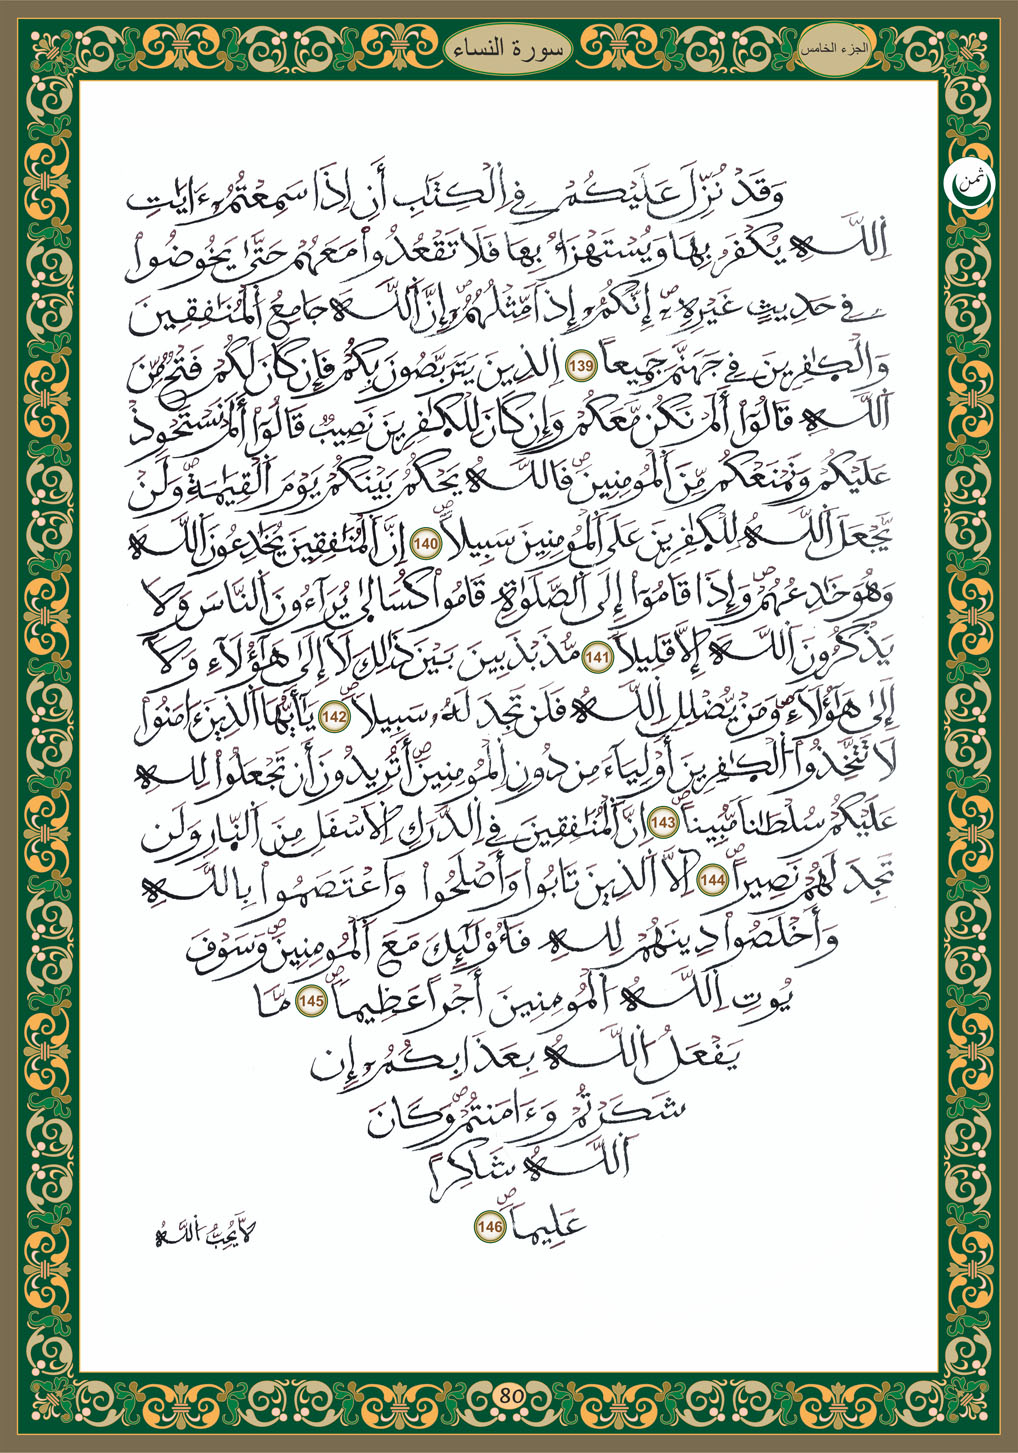 الجزء الخامس
سورة النساء
ثمن
وَقَدْ نُزِّلَ عَلَيْكُمْ فِي اِ۬لْكِتَٰبِ أَنِ اِذَا سَمِعْتُمُۥٓ ءَايَٰتِ
اِ۬للَّهِ يُكْفَرُ بِهَا وَيُسْتَهْزَأُ بِهَا فَلَا تَقْعُدُواْ مَعَهُمْ حَتَّىٰ يَخُوضُواْ
فِي حَدِيثٍ غَيْرِهِۦٓ إِنَّكُمُۥٓ إِذاٗ مِّثْلُهُمُۥٓ إِنَّ اَ۬للَّهَ جَامِعُ اُ۬لْمُنَٰفِقِينَ
وَالْكٰ۪فِرِينَ فِي جَهَنَّمَ جَمِيعاً 139 اِ۬لذِينَ يَتَرَبَّصُونَ بِكُمْ فَإِن كَانَ لَكُمْ فَتْحٞ مِّنَ
اَ۬للَّهِ قَالُوٓاْ أَلَمْ نَكُن مَّعَكُمْ وَإِن كَانَ لِلْكٰ۪فِرِينَ نَصِيبٞ قَالُوٓاْ أَلَمْ نَسْتَحْوِذْ
عَلَيْكُمْ وَنَمْنَعْكُم مِّنَ اَ۬لْمُومِنِينَ فَاللَّهُ يَحْكُمُ بَيْنَكُمْ يَوْمَ اَ۬لْقِيَٰمَةِ وَلَنْ
يَّجْعَلَ اَ۬للَّهُ لِلْكٰ۪فِرِينَ عَلَى اَ۬لْمُومِنِينَ سَبِيلاً 140 إِنَّ اَ۬لْمُنَٰفِقِينَ يُخَٰدِعُونَ اَ۬للَّهَ
وَهُوَ خَٰدِعُهُمْ وَإِذَا قَامُوٓاْ إِلَى اَ۬لصَّلَوٰةِ قَامُواْ كُسَالَىٰ يُرَآءُونَ اَ۬لنَّاسَ وَلَا
يَذْكُرُونَ اَ۬للَّهَ إِلَّا قَلِيلاٗ 141 مُّذَبْذَبِينَ بَيْنَ ذَٰلِكَ لَآ إِلَىٰ هَٰٓؤُلَآءِ وَلَآ
إِلَىٰ هَٰٓؤُلَآءِ وَمَنْ يُّضْلِلِ اِ۬للَّهُ فَلَن تَجِدَ لَهُۥ سَبِيلاٗ 142 يَٰٓأَيُّهَا اَ۬لذِينَ ءَامَنُواْ
لَا تَتَّخِذُواْ اُ۬لْكٰ۪فِرِينَ أَوْلِيَآءَ مِن دُونِ اِ۬لْمُومِنِينَ أَتُرِيدُونَ أَن تَجْعَلُواْ لِلهِ
عَلَيْكُمْ سُلْطَٰناٗ مُّبِيناً 143 اِنَّ اَ۬لْمُنَٰفِقِينَ فِي اِ۬لدَّرَكِ اِ۬لَاسْفَلِ مِنَ اَ۬لنّ۪ارِ وَلَن
تَجِدَ لَهُمْ نَصِيراً 144 اِلَّا اَ۬لذِينَ تَابُواْ وَأَصْلَحُواْ وَاعْتَصَمُواْ بِاللَّهِ
وَأَخْلَصُواْ دِينَهُمْ لِلهِ فَأُوْلَٰٓئِكَ مَعَ اَ۬لْمُومِنِينَ وَسَوْفَ
يُوتِ اِ۬للَّهُ اُ۬لْمُومِنِينَ أَجْراً عَظِيماٗ 145 مَّا
يَفْعَلُ اُ۬للَّهُ بِعَذَابِكُمُۥٓ إِن
شَكَرْتُمْ وَءَامَنتُمْ وَكَانَ
اَ۬للَّهُ شَاكِراً
عَلِيماٗ 146
لَّا يُحِبُّ اُ۬للَّهُ
80